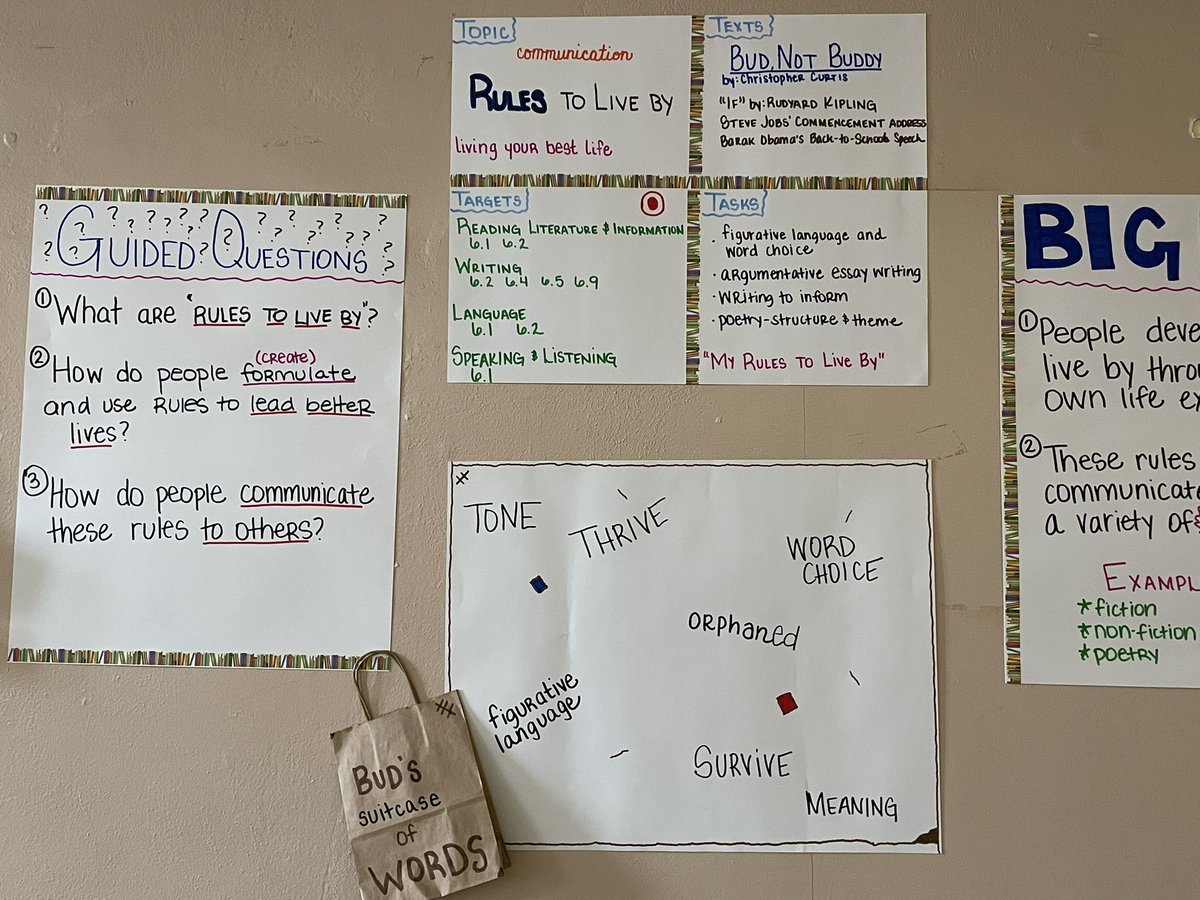 GUIDED QUESTIONS
① What are "RULES TO LIVE BY"?
(create)
② How do people formulate
and use RULES to lead better
lives?
③ How do people communicate
these rules to others?
TOPIC
communication
RULES TO LIVE BY
living your best life
TEXTS
BUD, NOT BUDDY
by: Christopher Curtis
"IF" by: RUDYARD KIPLING
STEVE JOBS' COMMENCEMENT ADDRESS
BARAK OBAMA'S BACK-TO-SCHOOL SPEECH
TARGETS
READING LITERATURE & INFORMATION
6.1 6.2
WRITING
6.2 6.4 6.5 6.9
LANGUAGE
6.1 6.2
SPEAKING & LISTENING
6.1
TASKS
• figurative language and
word choice
• argumentative essay writing
• Writing to inform
• poetry-structure & theme
"MY RULES TO LIVE BY"
TONE
THRIVE
WORD
CHOICE
ORphaned
figurative
language
SURVIVE
MEANING
BUD'S
suitcase
of
WORDS
BIG
① People deve
live by throu
own life ex
② These rules
communicate
a variety of
EXAMPL
*fiction
*non-fiction
*poetry